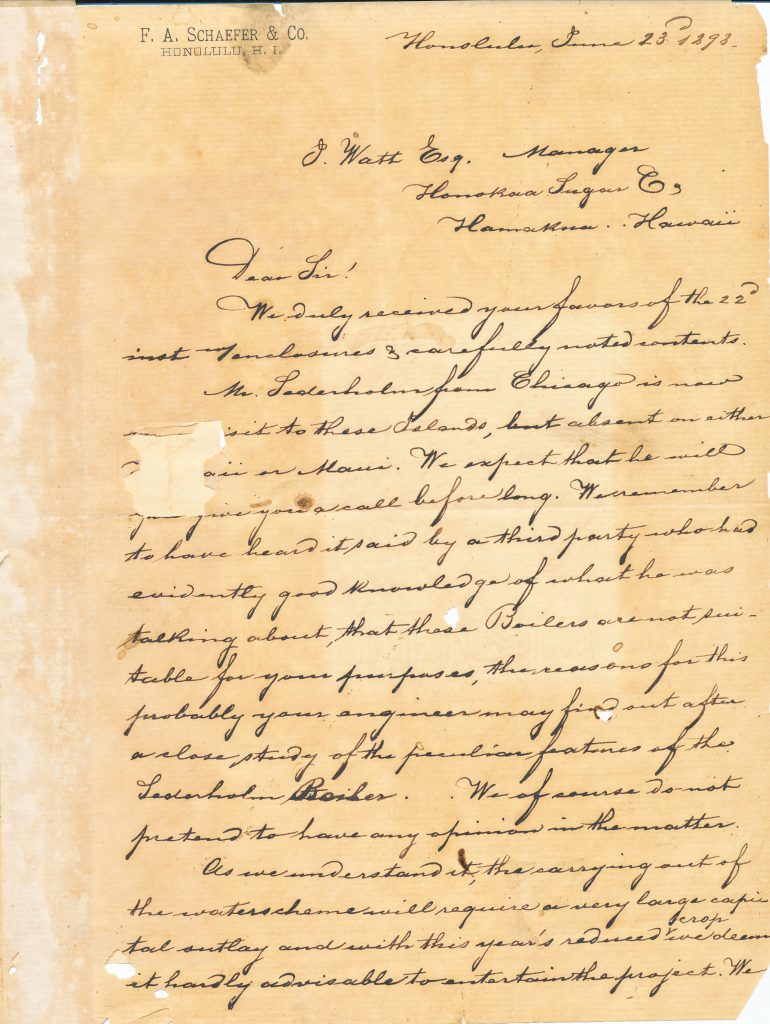 F. A. SCHAEFER & CO.
HONOLULU, H. I.
Honolulu, June 23d 1893.
J. Watt Esq. Manager
Honokaa Sugar Co,
Hamakua . . Hawaii
Dear Sir!
We duly received your favors of the 22d
inst w/enclosures & carefully noted contents.
Mr. Sederholm from Chicago is now
isit to these Islands, but absent on either
aii or Maui. We expect that he will
give you a call before long. We remember
to have heard it said by a third party who had
evidently good knowledge of what he was
talking about, that these Boilers are not sui-
table for your purposes, the reasons for this
probably your engineer may find out after
a close study of the peculiar features of the
Sederholm Boiler . . We of course do not
pretend to have any opinion in the matter.
As we understand it, the carrying out of
the waterscheme will require a very large capi
tal outlay and with this year's reduced crop we deem
it hardly advisable to entertain the project. We